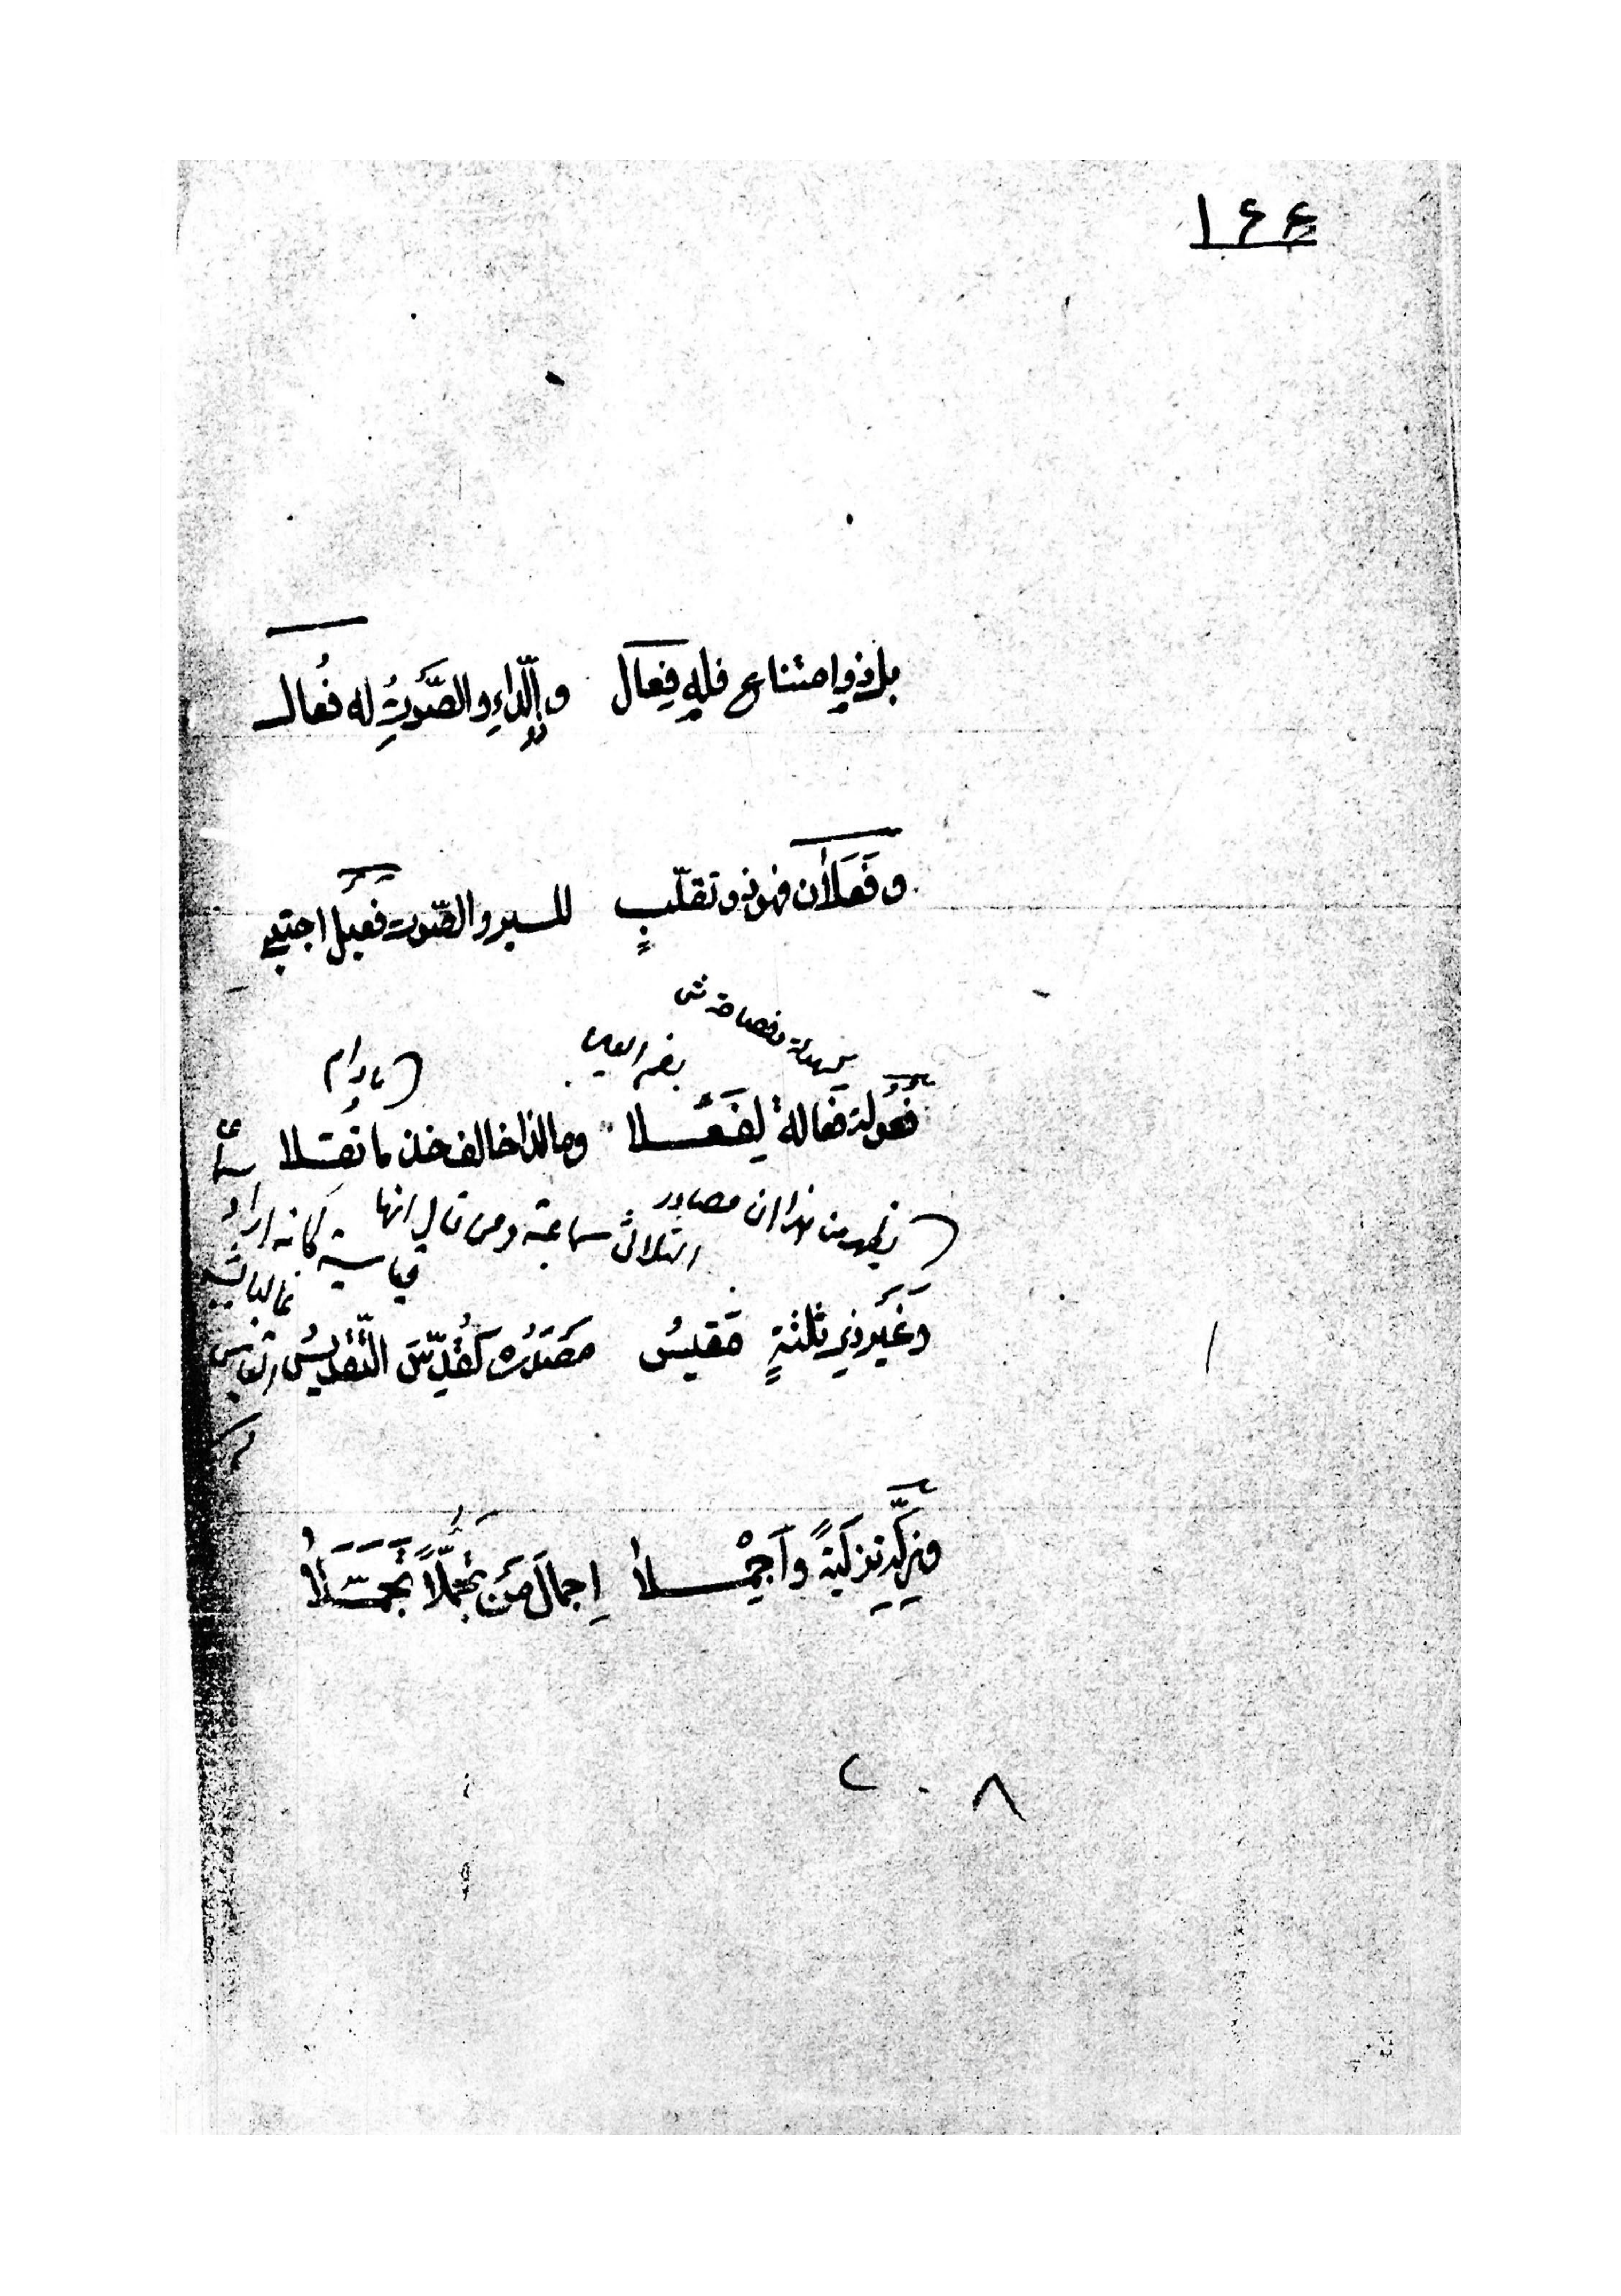 ۱۶۶
بل ذو امتناع فله فِعَال والدّاءِ والصَّوْتِ له فُعال
و فَعَلَان فهو ذو تقلّبٍ للسير والصّوت فَعِيل اجتبي
كسهولة و فصاحة ش
بضم العين
فُعُولة فَعَالة لِفَعُلا وما لذا خالف خذ ما نُقِلا
يظهر من هذا ان مصادر
الثلاثي سماعية ومن قال انها
قياسية كانه اراد
وغَير ذي ثلثةٍ مَقيسُ مَصْدَرُه كَقُدِّسَ التَّقْدِيسُ
وزَكِّهِ تزكيةً وأَجْمِلا إجمالَ مَن تجمُّلاً تَجَمَّلا
۲۰۸